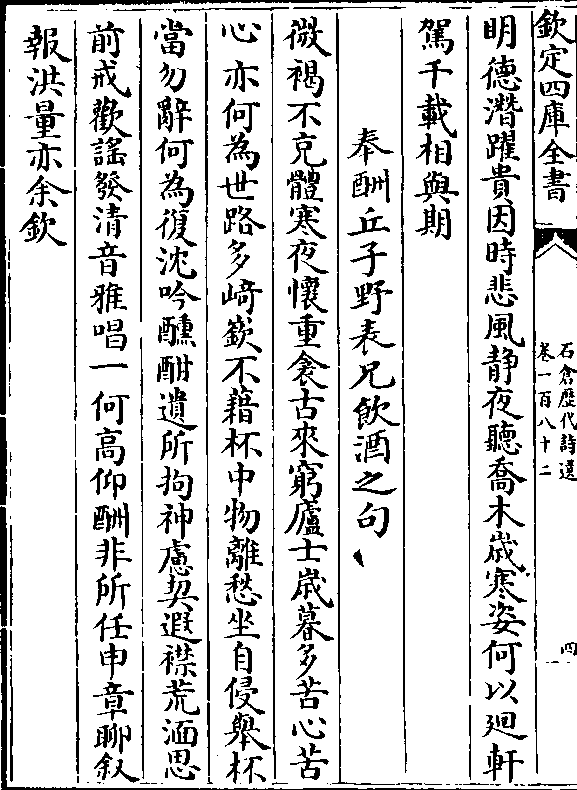 欽定四庫全書
石倉歷代詩選
卷一百八十二
四
明德潛躍貴因時悲風静夜聽喬木歲寒姿何以廻軒
駕千載相與期
奉酬丘子野表兄飲酒之句
微褐不克體寒夜懷重衾古來窮廬士歲暮多苦心苦
心亦何為世路多﨑嶔不藉杯中物離愁坐自侵舉杯
當勿辭何為復沈吟醺酣遺所拘神慮契遐襟荒湎思
前戒歡謡發清音雅唱一何高仰酬非所任申章聊叙
報洪量亦余欽